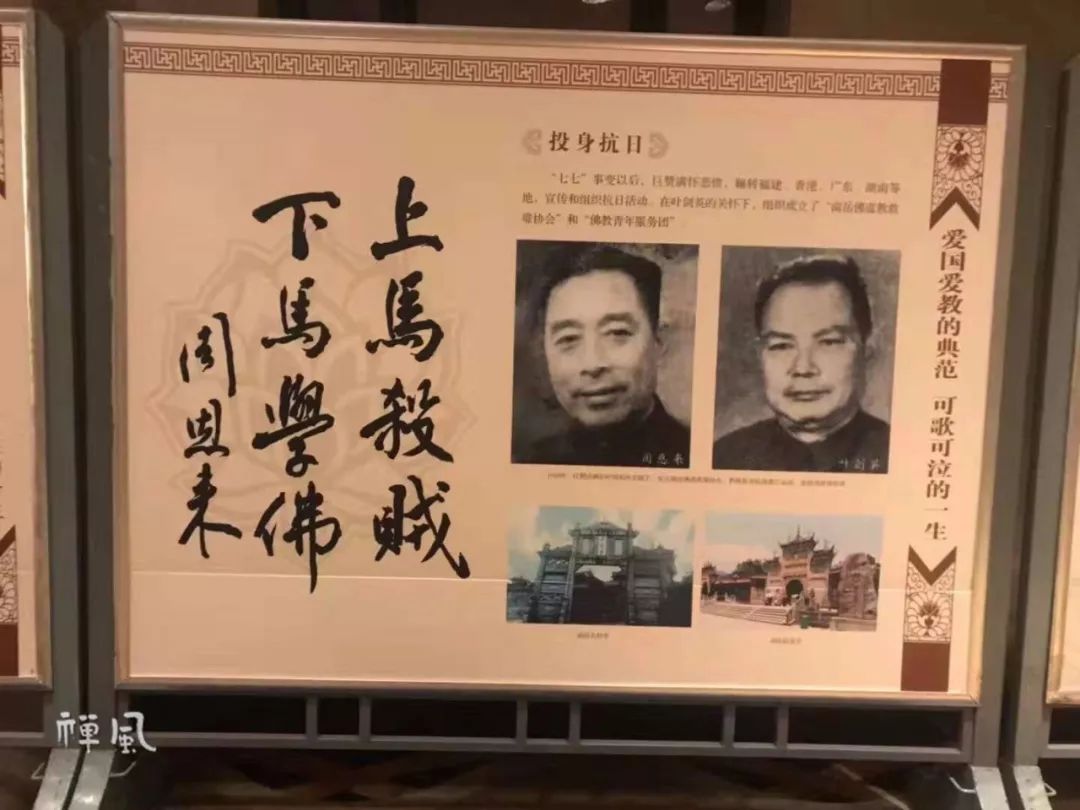 上馬殺賊
下馬學佛
周恩来
投身抗日
“七七”事变以后，巨赞满怀悲愤，辗转福建、香港、广东、湖南等
地，宣传和组织抗日活动。在叶剑英的关怀下，组织成立了“南岳佛道教救
难协会”和“佛教青年服务团”
周恩来
叶剑英
爱国爱教的典范 可歌可泣的一生
禪風